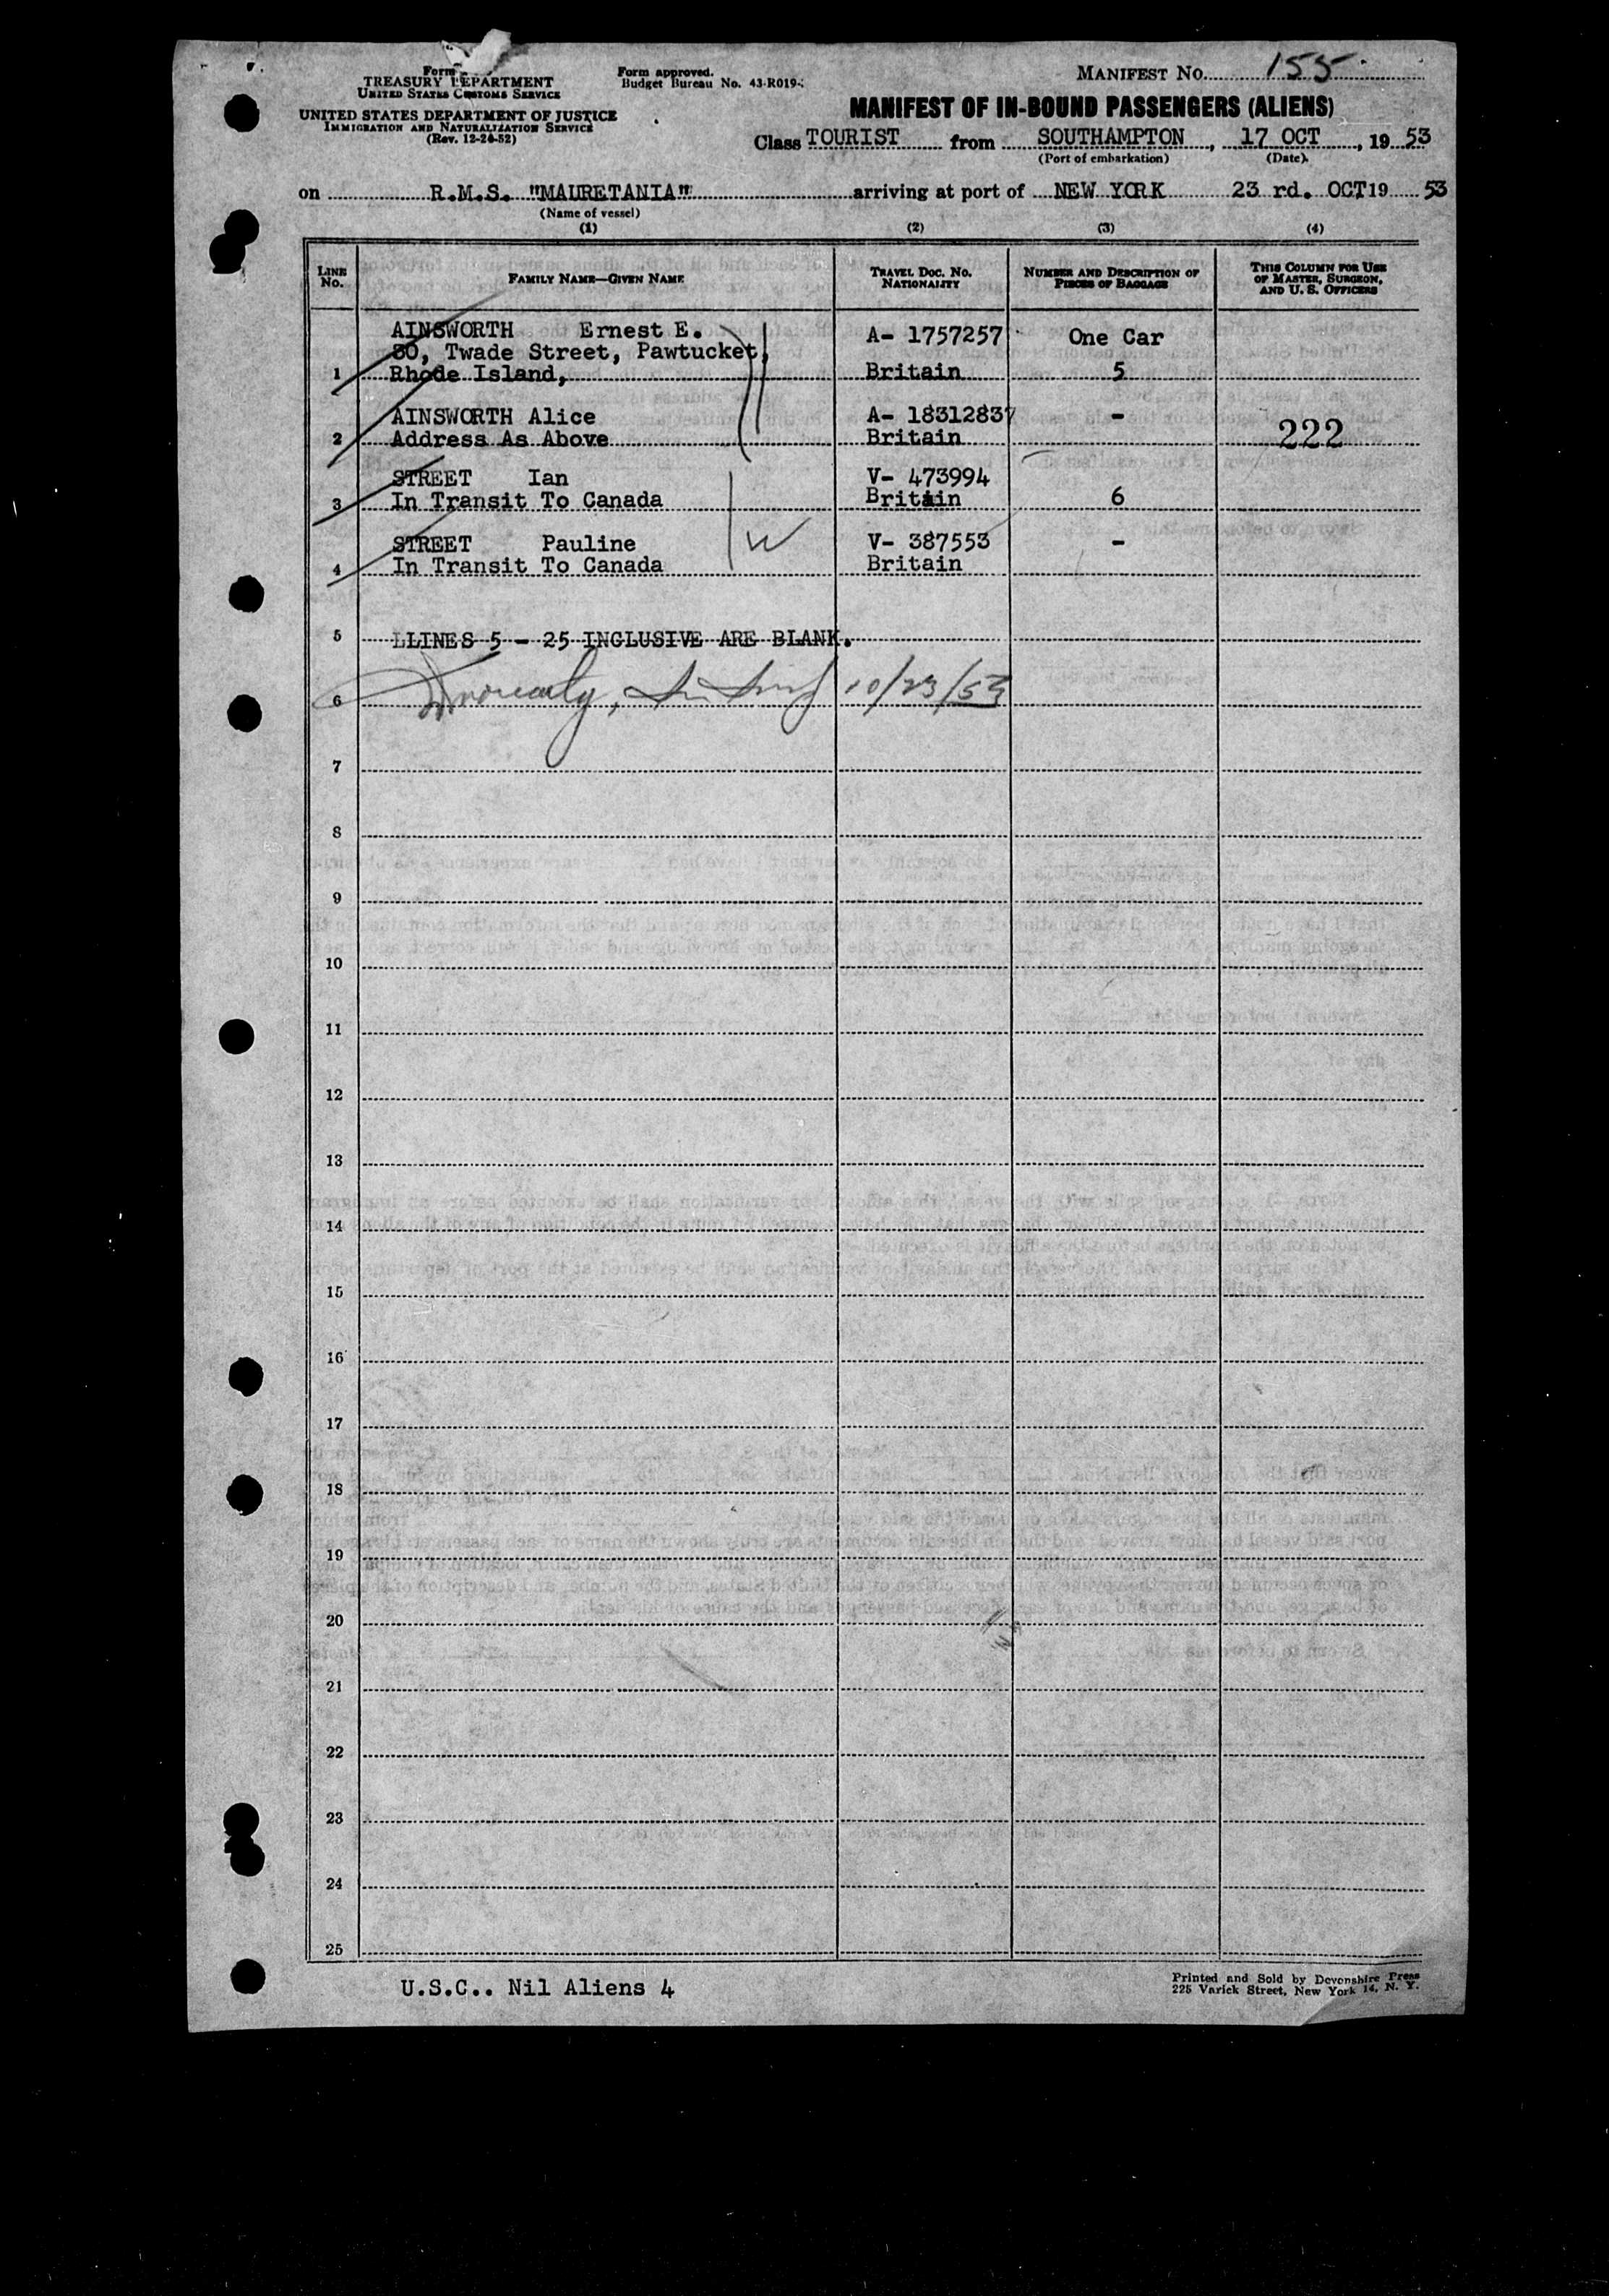 Form
TREASURY DEPARTMENT
UNITED STATES CUSTOMS SERVICE
UNITED STATES DEPARTMENT OF JUSTICE
IMMIGRATION AND NATURALIZATION SERVICE
(Rev. 12-24-52)
Form approved.
Budget Bureau No. 43-R019-
MANIFEST NO. 155
MANIFEST OF IN-BOUND PASSENGERS (ALIENS)
Class TOURIST from SOUTHAMPTON, 17 OCT, 19 53
(Port of embarkation) (Date)
on R.M.S. "MAURETANIA" arriving at port of NEW YORK 23 rd. OCT 19 53
(Name of vessel)
(1) (2) (3) (4)
LINE No. FAMILY NAME—GIVEN NAME TRAVEL DOC. NO. NATIONALITY NUMBER AND DESCRIPTION OF PIECES OF BAGGAGE THIS COLUMN FOR USE OF MASTER, SURGEON, AND U. S. OFFICERS
AINSWORTH Ernest E. A- 1757257 One Car
80, Twade Street, Pawtucket,
1 Rhode Island, Britain 5
AINSWORTH Alice A- 18312837 -
2 Address As Above Britain 222
STREET Ian V- 473994
3 In Transit To Canada Britain 6
STREET Pauline W V- 387553 -
4 In Transit To Canada Britain
5 LLINES 5 - 25 INCLUSIVE ARE BLANK.
6 10/23/53
7
8
9
10
11
12
13
14
15
16
17
18
19
20
21
22
23
24
25
U.S.C.. Nil Aliens 4
Printed and Sold by Devonshire Press
225 Varick Street, New York 14, N. Y.